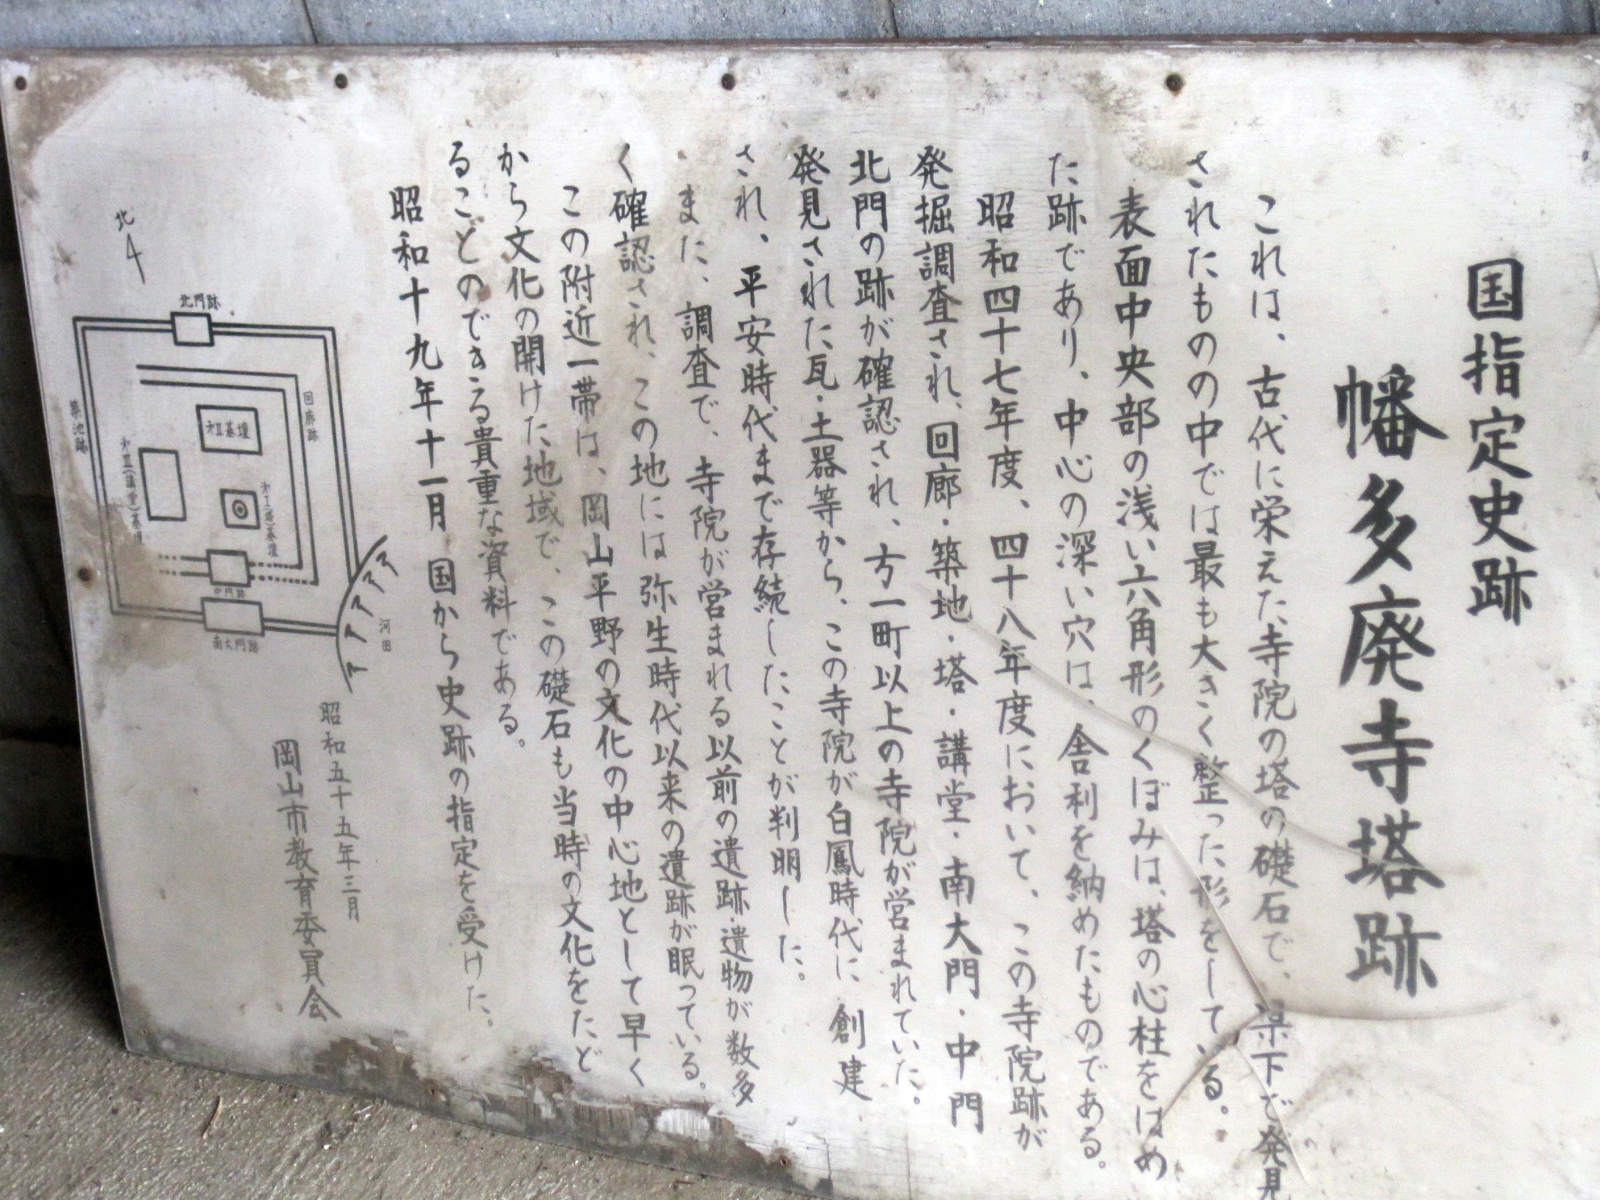 国指定史跡
幡多廃寺塔跡
これは、古代に栄えた寺院の塔の礎石で、県下で発見
されたものの中では最も大きく整った形をしている。
表面中央部の浅い六角形のくぼみは、塔の心柱をはめ
た跡であり、中心の深い穴は、舎利を納めたものである。
昭和四十七年度、四十八年度において、この寺院跡が
発掘調査され、回廊・築地・塔・講堂・南大門・中門
北門の跡が確認され、方一町以上の寺院が営まれていた。
発見された瓦・土器等から、この寺院が白鳳時代に創建
され、平安時代まで存続したことが判明した。
また、調査で、寺院が営まれる以前の遺跡・遺物が数多
く確認され、この地には弥生時代以来の遺跡が眠っている。
この附近一帯は、岡山平野の文化の中心地として早く
から文化の開けた地域で、この礎石も当時の文化をたど
ることのできる貴重な資料である。
昭和十九年十一月 国から史跡の指定を受けた。
昭和五十五年三月
岡山市教育委員会
北
北門跡
回廊跡
築地跡
才Ⅱ基壇
才Ⅰ(塔)基壇
才Ⅲ(講堂)基壇
中門跡
南大門跡
河田